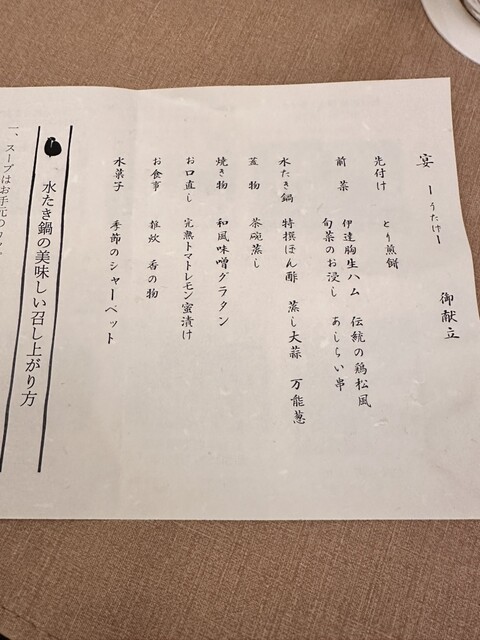 御献立
宴 ーうたげー
先付け とり煎餅
前菜 伊達胸生ハム 伝統の鶏松風
旬菜のお浸し あしらい串
水たき鍋 特撰ぽん酢 蒸し大蒜 万能葱
蓋物 茶碗蒸し
焼き物 和風味噌グラタン
お口直し 完熟トマトレモン蜜漬け
お食事 雑炊 香の物
水菓子 季節のシャーベット
水たき鍋の美味しい召し上がり方
一、スープはお手元の